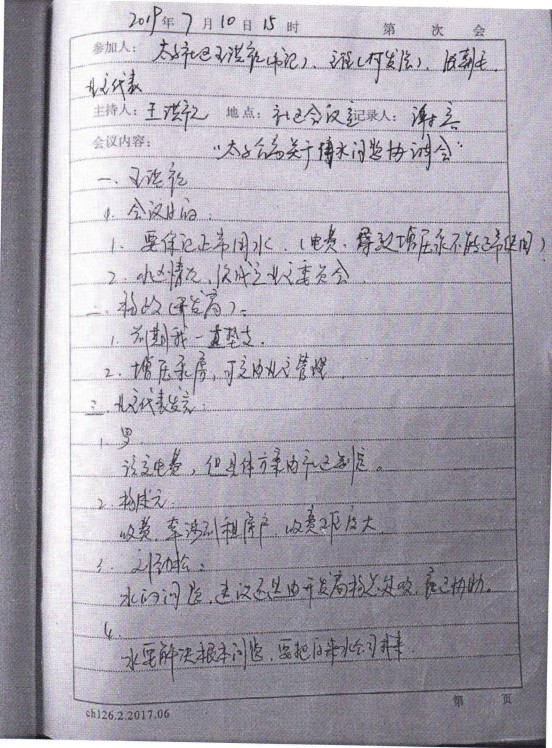 2019年7月10日15时 第 次 会
参加人: 太子社区王洪乾(书记)、
业主代表
主持人: 王洪乾 地点: 社区会议室 记录人: 谢
会议内容: "太子 关于停水问题协调会"
一、王洪乾
1. 会议目的:
1. 要保证正常用水。(电费、导致增压泵不能正常使用)
2. 小区情况,没成立业主委员会
二、杨 (开发商):
1. 前期我一直垫支.
2. 增压泵房,可交由业主管理
三、业主代表发言:
1. 男
该交电费,但具体方案由社区制定。
2. 杨
收费,牵涉到租房户,收费难度大
3. 刘 :
水的问题,建议还是由开发商 ,社区协助。
4.
水要解决根本问题,要把自来水公司
第 页
ch126.2.2017.06